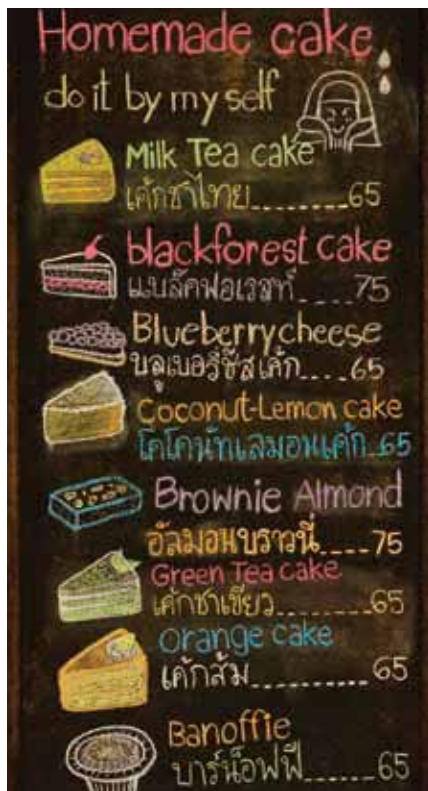 Homemade cake
do it by my self
Milk Tea cake
เค้กชาไทย........65
blackforest cake
แบล็คฟอเรสท์....75
Blueberry cheese
บลูเบอรี่ชีสเค้ก....65
Coconut-Lemon cake
โคโคนัทเลมอนเค้ก..65
Brownie Almond
อัลมอนบราวนี่....75
Green Tea cake
เค้กชาเขียว........65
orange cake
เค้กส้ม..........65
Banoffie
บาร์น็อฟฟี่......65